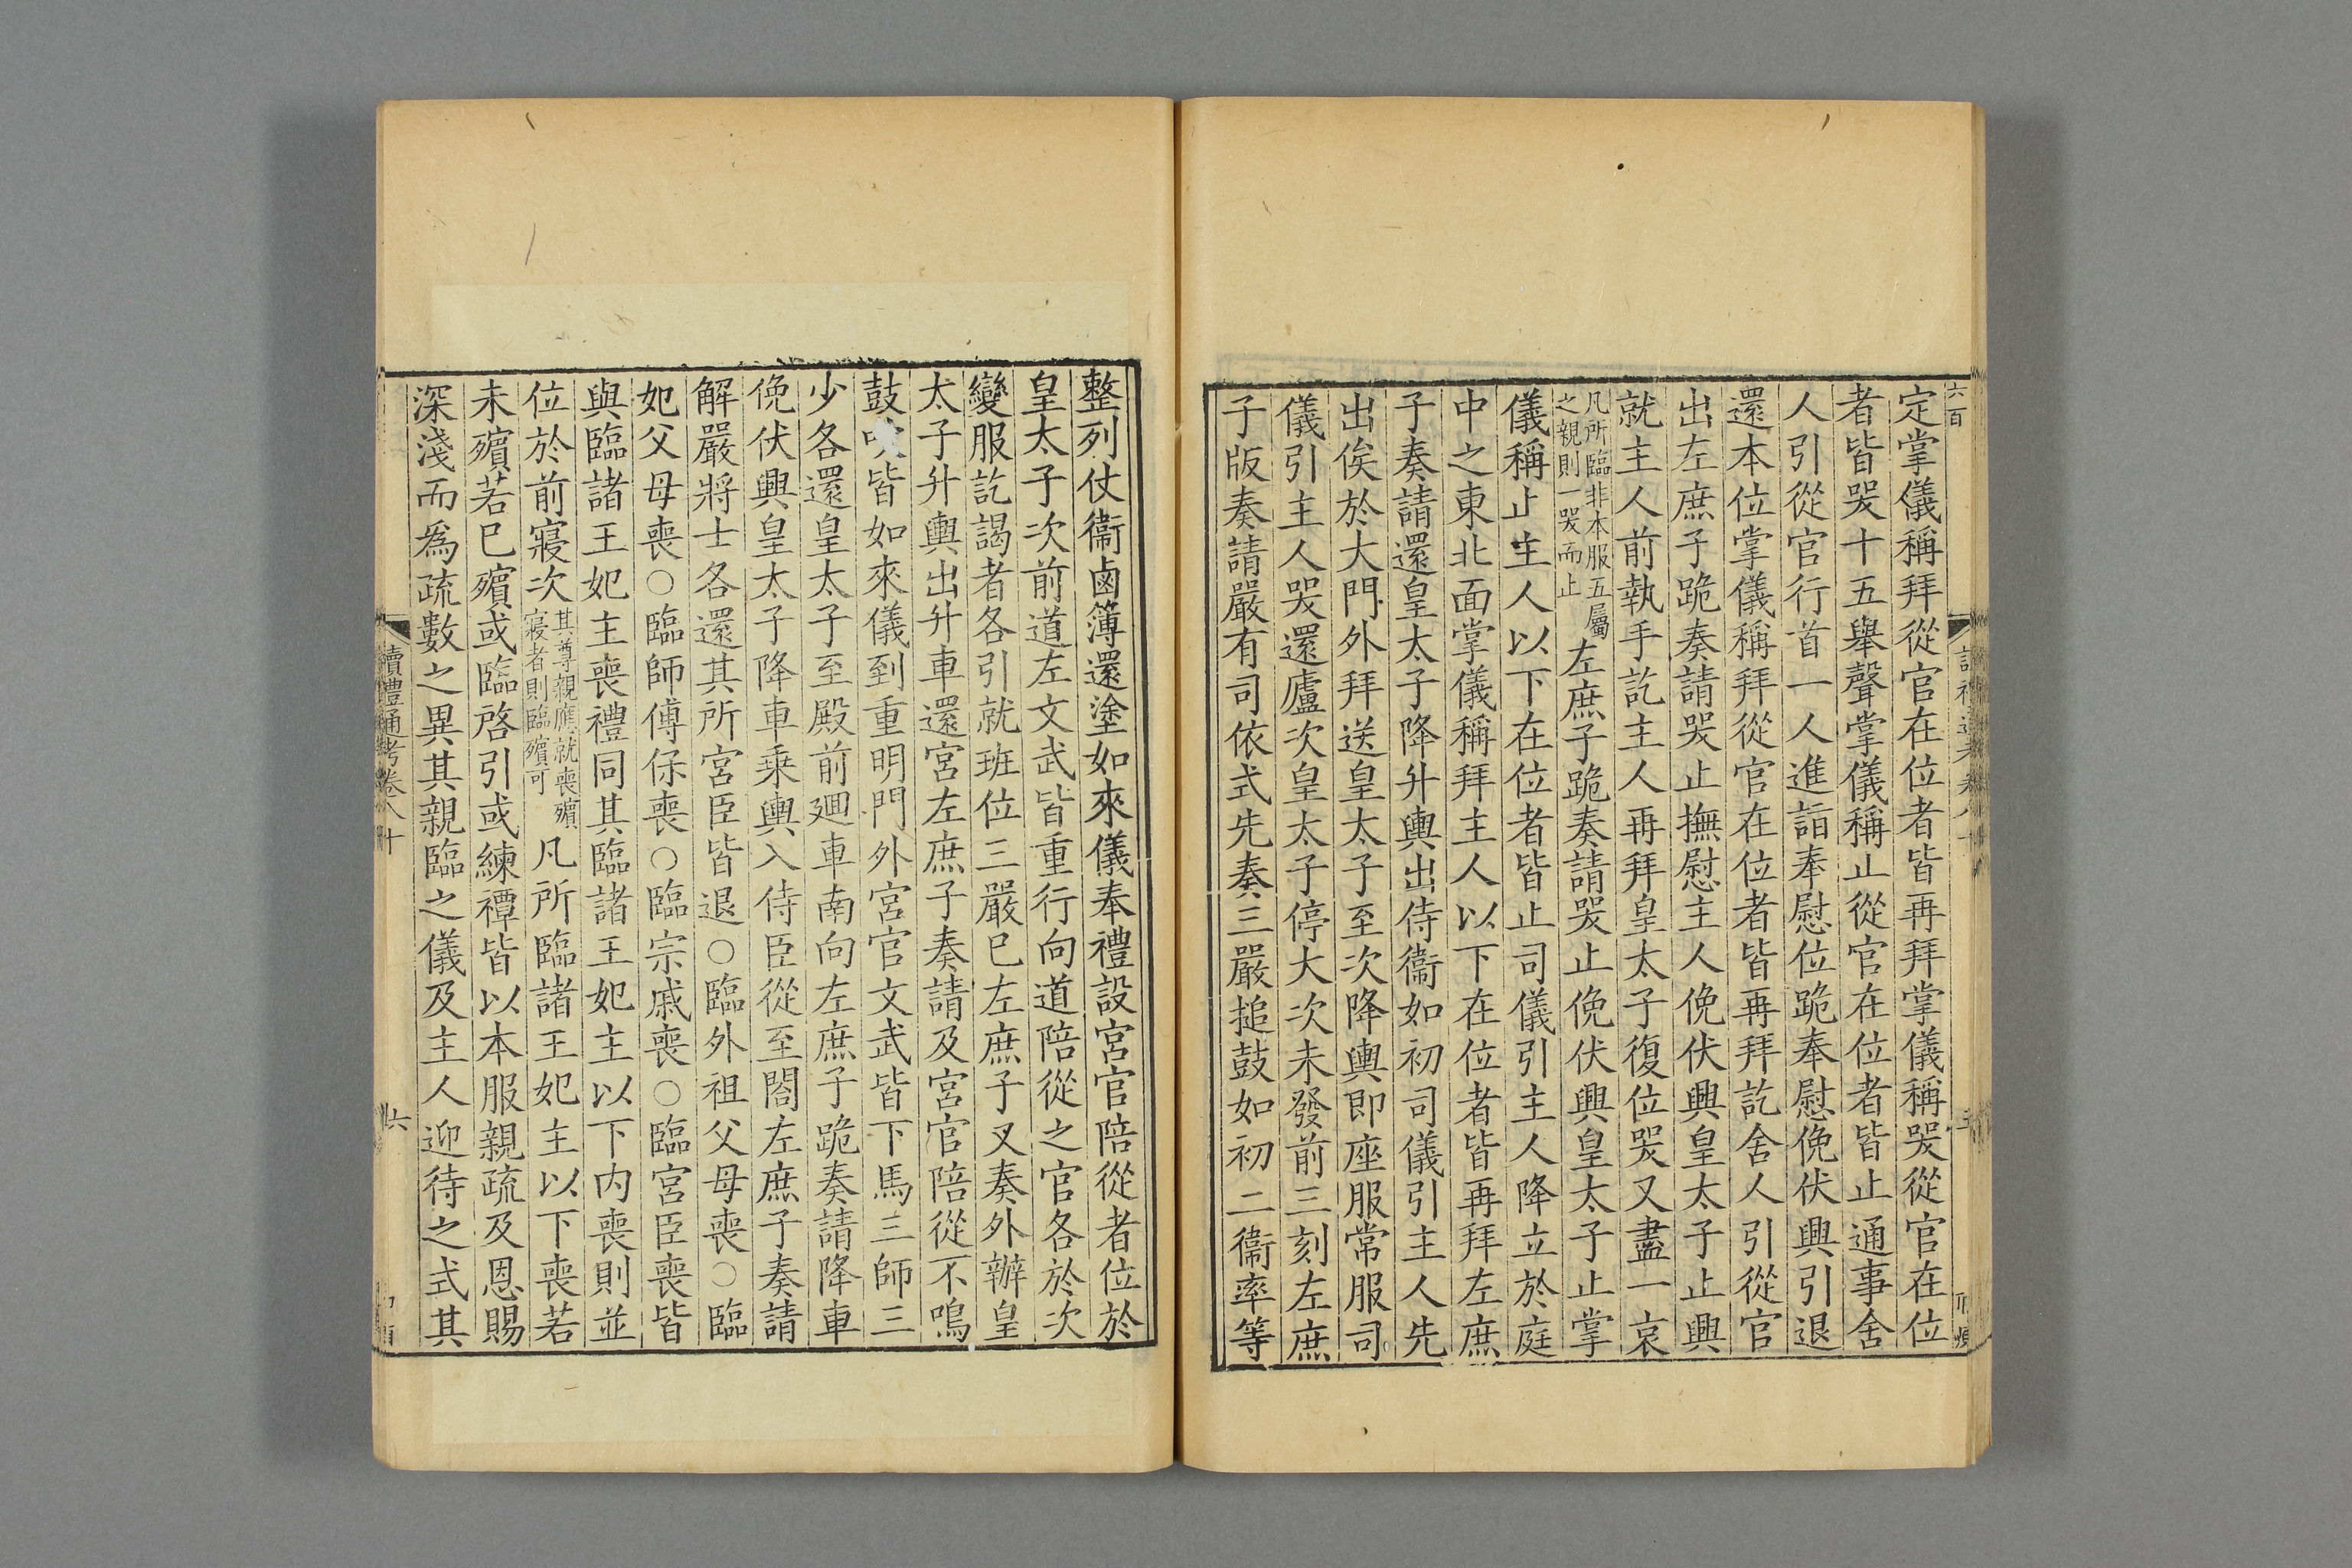 定掌儀稱拜從官在位者皆再拜掌儀稱哭從官在位
者皆哭十五舉聲掌儀稱止從官在位者皆止通事舍
人引從官行首一人進詣奉慰位跪奉慰俛伏興引退
還本位掌儀稱拜從官在位者皆再拜訖舍人引從官
出左庶子跪奏請哭止撫慰主人俛伏興皇太子止興
就主人前執手訖主人再拜皇太子復位哭又盡一哀
凡所臨非本服五屬
之親則一哭而止
左庶子跪奏請哭止俛伏興皇太子止掌
儀稱止主人以下在位者皆止司儀引主人降立於庭
中之東北面掌儀稱拜主人以下在位者皆再拜左庶
子奏請還皇太子降升輿出侍衞如初司儀引主人先
出俟於大門外拜送皇太子至次降輿即座服常服司
儀引主人哭還廬次皇太子停大次未發前三刻左庶
子版奏請嚴有司依式先奏三嚴搥鼓如初二衞率等
六百
整列仗衞鹵簿還塗如來儀奉禮設宮官陪從者位於
皇太子次前道左文武皆重行向道陪從之官各於次
變服訖謁者各引就班位三嚴已左庶子又奏外辦皇
太子升輿出升車還宮左庶子奏請及宮官陪從不鳴
鼓吹皆如來儀到重明門外宮官文武皆下馬三師三
少各還皇太子至殿前廻車南向左庶子跪奏請降車
俛伏興皇太子降車乗輿入侍臣從至閤左庶子奏請
解嚴將士各還其所宮臣皆退○臨外祖父母喪○臨
妃父母喪○臨師傅保喪○臨宗戚喪○臨宮臣喪皆
與臨諸王妃主喪禮同其臨諸王妃主以下内喪則並
位於前寢次
其尊親應就喪殯
寢者則臨殯可
凡所臨諸王妃主以下喪若
未殯若已殯或臨啓引或練禫皆以本服親疏及恩賜
深淺而爲疏數之異其親臨之儀及主人迎待之式其
讀禮通考卷八十
六